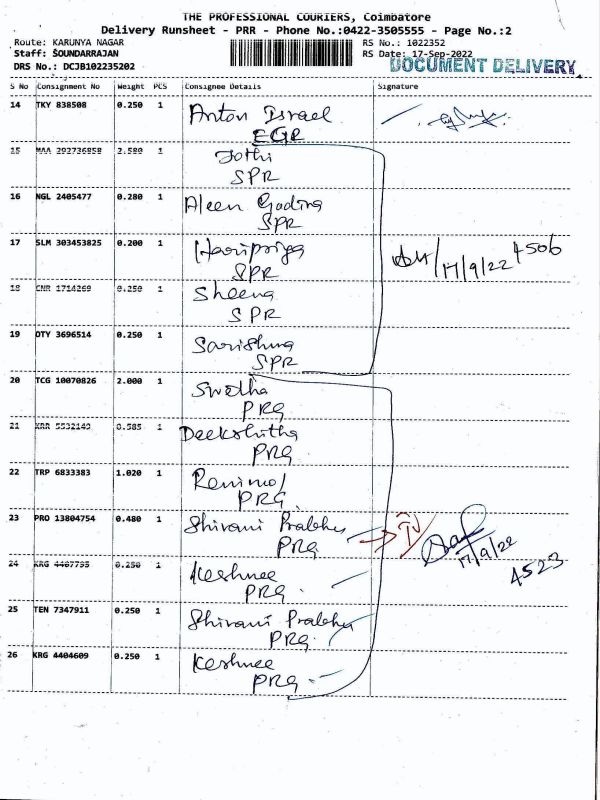 THE PROFESSIONAL COURIERS, Coimbatore
Delivery Runsheet - PRR - Phone No.:0422-3505555 - Page No.:2
Route: KARUNYA NAGAR RS No.: 1022352
Staff: SOUNDARRAJAN RS Date: 17-Sep-2022
DRS No.: DCJB102235202 DOCUMENT DELIVERY
S No Consignment No Weight PCS Consignee Details Signature
14 TKY 838508 0.250 1 Anton Israel
EGR
15 MAA 292736858 2.580 1 Jothi
SPR
16 NGL 2405477 0.280 1 Aleen Godina
SPR
17 SLM 303453825 0.200 1 Haripriya
SPR
17/9/22 4506
18 CNR 1714269 0.250 1 Sheena
SPR
19 OTY 3696514 0.250 1 Sarishma
SPR
20 TCG 10070826 2.000 1 Swetha
PRG
21 KRR 5532149 0.585 1 Deekshitha
PRG
22 TRP 6833383 1.020 1 Renimol
PRG
23 PRO 13804754 0.480 1 Shivani Prabhu
PRG
17/9/22
4523
24 KRG 4407795 0.250 1 Keshnee
PRG
25 TEN 7347911 0.250 1 Shivani Prabhu
PRG
26 KRG 4404609 0.250 1 Keshnee
PRG